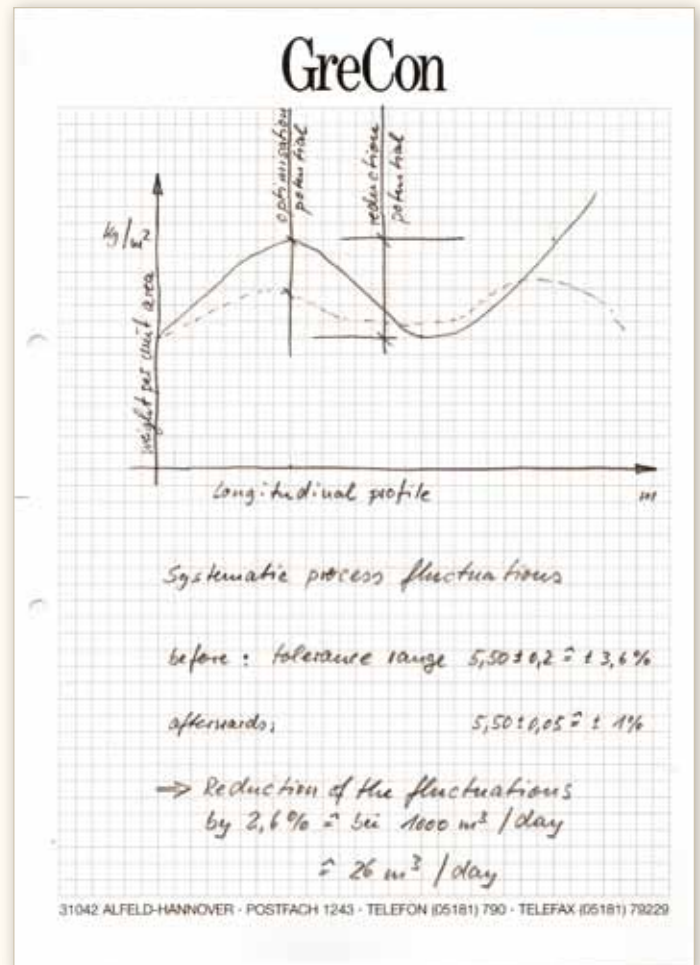 GreCon
optimisation
potential
reduction
potential
kg/m²
weight per unit area
Longitudinal profile
m
Systematic process fluctuations
before : tolerance range 5,50 ± 0,2 ≙ ± 3,6 %
afterwards: 5,50 ± 0,05 ≙ ± 1%
⇒ Reduction of the fluctuations
by 2,6 % ≙ bei 1000 m³ / day
≙ 26 m³ / day
31042 ALFELD-HANNOVER · POSTFACH 1243 · TELEFON (05181) 790 · TELEFAX (05181) 79229